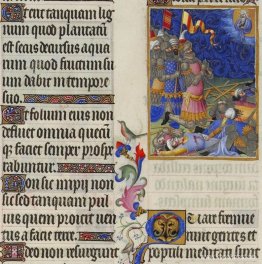 Et erit tanquam lig
num quod plantatū
est secus decursus aqua
rum quod fructum su
um dabit in tempore
suo.
Et folium eius non
defluet omnia quecūq̄
faciet semper prospe
rabuntur.
Non sic impii non
sic sed tanquam pul
uis quem proicit uen
tus a facie terre.
Ideo non resurgunt
Quare fremue
runt gentes et
populi meditati sunt